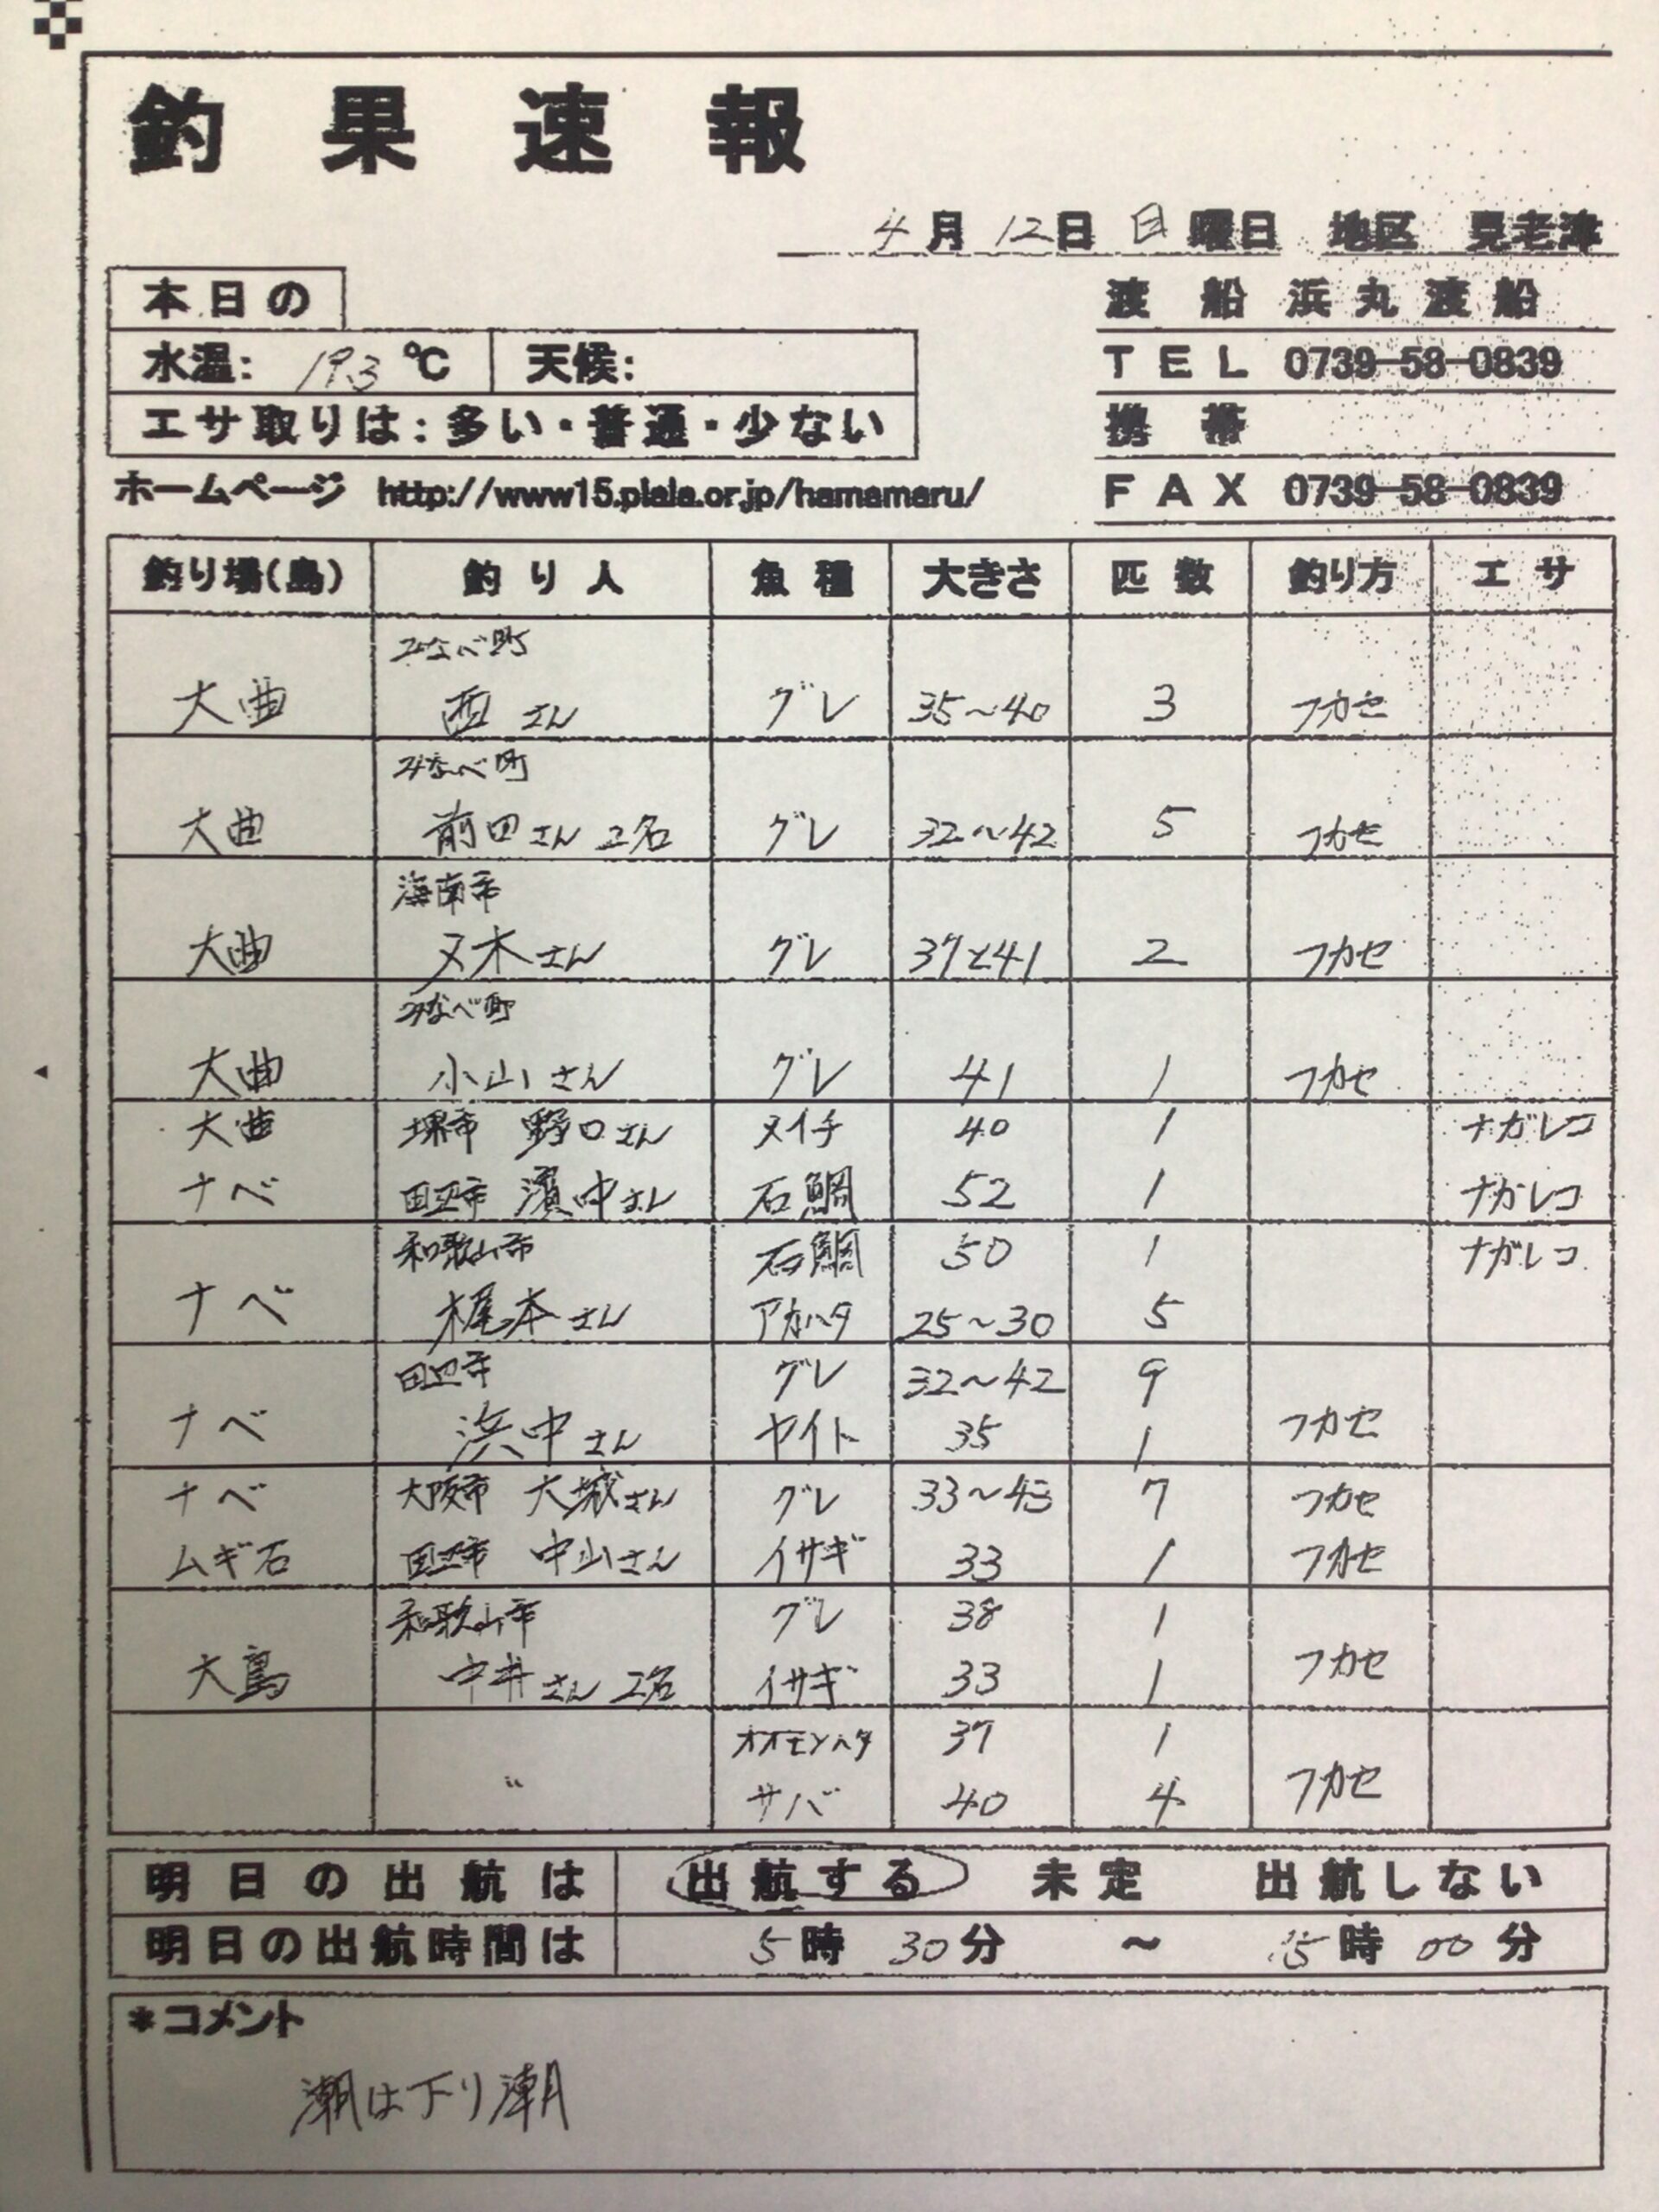 釣果速報
4月12日 日曜日 地区 見老津
本日の
水温: 19.3 ℃ 天候:
エサ取りは:多い・普通・少ない
渡船 浜丸渡船
TEL 0739-58-0839
携帯
FAX 0739-58-0839
ホームページ http://www15.plala.or.jp/hamamaru/
釣り場(島) 釣り人 魚種 大きさ 匹数 釣り方 エサ
みなべ町
大曲 西さん グレ 35〜40 3 フカセ
みなべ町
大曲 前田さん 2名 グレ 32〜42 5 フカセ
海南市
大曲 又木さん グレ 37と41 2 フカセ
みなべ町
大曲 小山さん グレ 41 1 フカセ
大曲 堺市 野口さん ヌイチ 40 1 ナガレコ
ナベ 田辺市 濱中さん 石鯛 52 1 ナガレコ
和歌山市 石鯛 50 1 ナガレコ
ナベ 梶本さん アカハタ 25〜30 5
田辺市 グレ 32〜42 9
ナベ 浜中さん ヤイト 35 1 フカセ
ナベ 大阪市 大城さん グレ 33〜43 7 フカセ
ムギ石 田辺市 中山さん イサギ 33 1 フカセ
和歌山市 グレ 38 1
大島 中井さん 2名 イサギ 33 1 フカセ
オオモンハタ 37 1
〃 サバ 40 4 フカセ
明日の出航は 出航する 未定 出航しない
明日の出航時間は 5時 30分 〜 15時 00分
*コメント
潮は下り潮